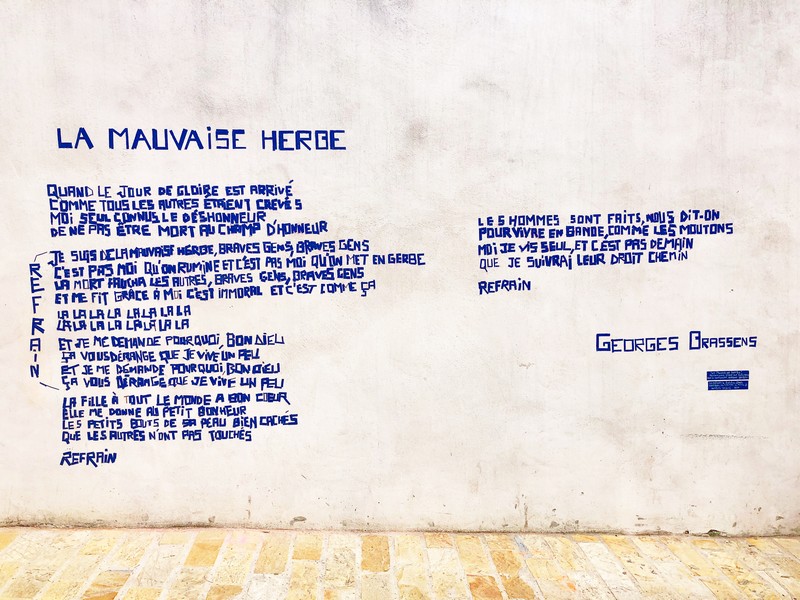 LA MAUVAiSE HERBE
QUAND LE JOUR DE GLOIRE EST ARRIVÉ
COMME TOUS LES AUTRES ÉTAIENT CREVÉS
MOI SEUL CONNUS LE DÉSHONNEUR
DE NE PAS ÊTRE MORT AU CHAMP D'HONNEUR
REFRAIN
JE SUIS DE LA MAUVAISE HERBE, BRAVES GENS, BRAVES GENS
C'EST PAS MOI QU'ON RUMINE ET C'EST PAS MOI QU'ON MET EN GERBE
LA MORT FAUCHA LES AUTRES, BRAVES GENS, BRAVES GENS
ET ME FIT GRÂCE À MOI C'EST IMMORAL ET C'EST COMME ÇA
LA LA LA LA LA LA LA LA
LA LA LA LA LA LA LA LA
ET JE ME DEMANDE POURQUOI, BON DIEU
ÇA VOUS DÉRANGE QUE JE VIVE UN PEU
ET JE ME DEMANDE POURQUOI, BON DIEU
ÇA VOUS DÉRANGE QUE JE VIVE UN PEU
LA FILLE À TOUT LE MONDE A BON CŒUR
ELLE ME DONNE AU PETIT BONHEUR
LES PETITS BOUTS DE SA PEAU BIEN CACHÉS
QUE LES AUTRES N'ONT PAS TOUCHÉS
REFRAIN
LES HOMMES SONT FAITS, NOUS DIT-ON
POUR VIVRE EN BANDE, COMME LES MOUTONS
MOI JE VIS SEUL, ET C'EST PAS DEMAIN
QUE JE SUIVRAI LEUR DROIT CHEMIN
REFRAIN
GEORGES BRASSENS